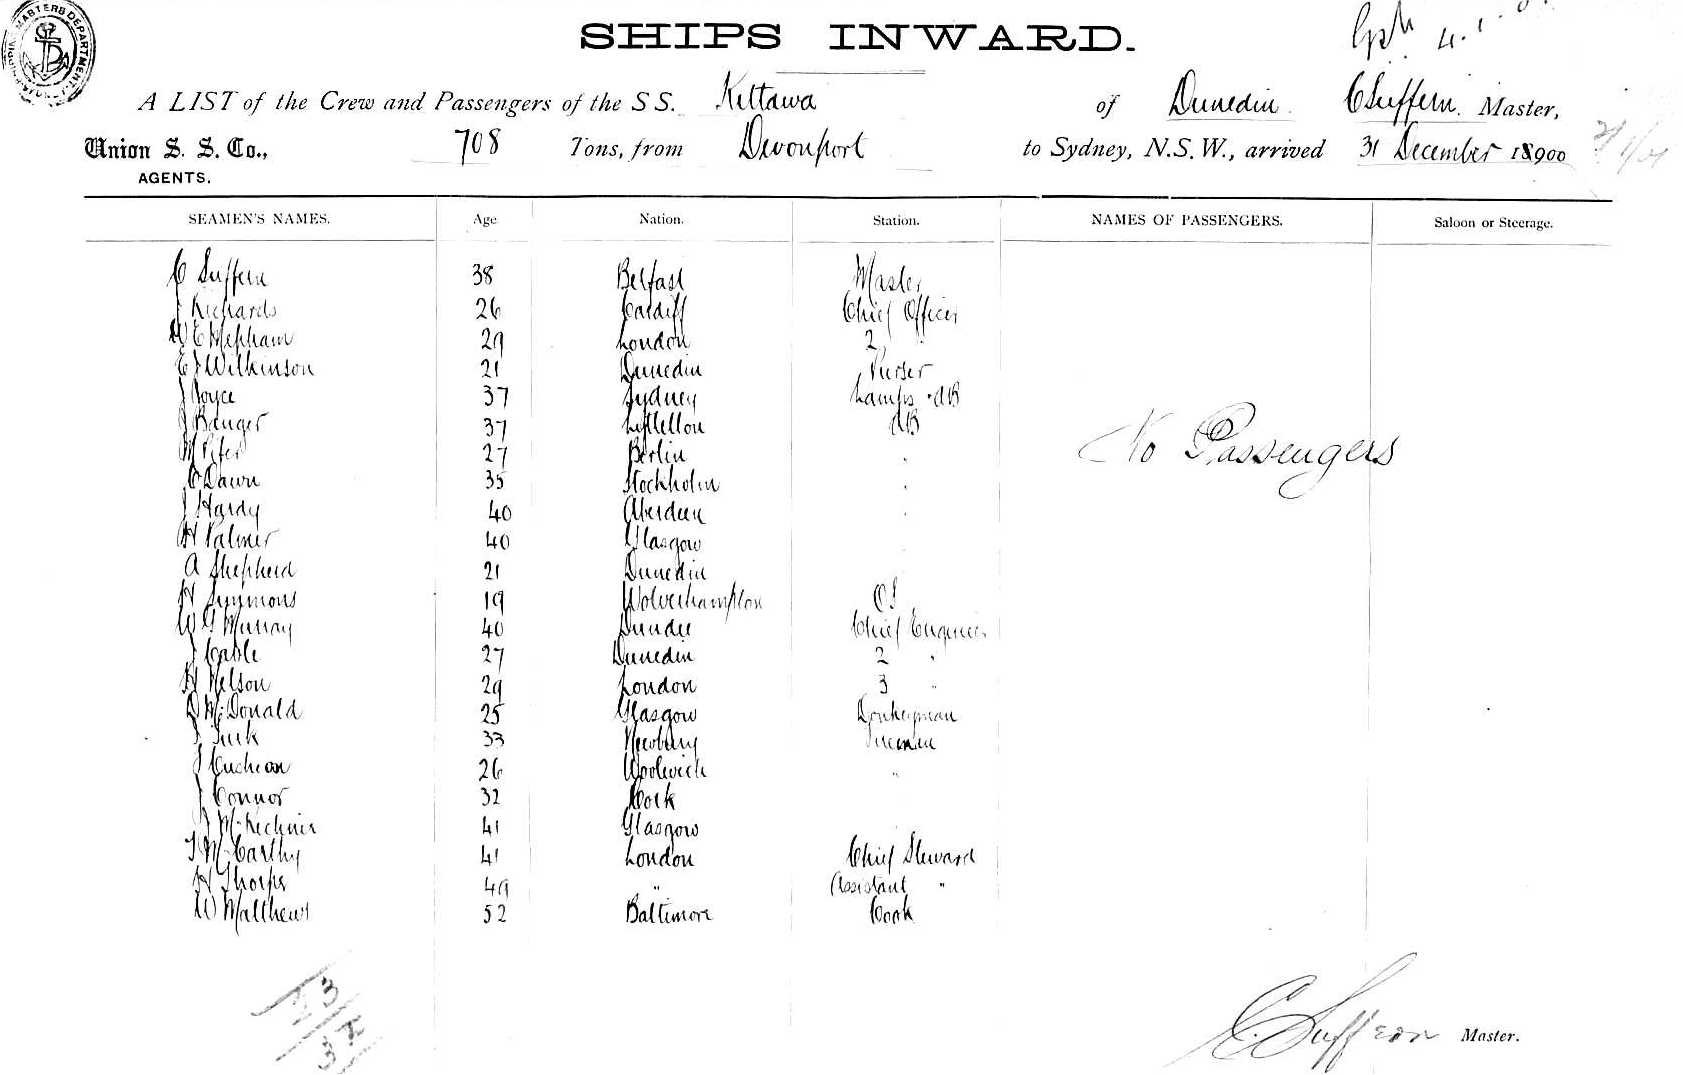 SHIPS INWARD.
A LIST of the Crew and Passengers of the S S. Kittawa of Dunedin. C Suffern. Master,
Union S. S. Co., 708 Tons, from Devonport to Sydney, N.S.W., arrived 31 December 18900
AGENTS.
SEAMEN'S NAMES. Age Nation. Station. NAMES OF PASSENGERS. Saloon or Steerage.
C Suffern 38 Belfast Master
J Richards 26 Cardiff Chief Officer
W E Mepham 29 London 2 "
E J Wilkinson 21 Dunedin Purser
J Joyce 37 Sydney Lamps AB
J Banger 37 Lyttelton AB
M Pifer 27 Berlin
C Dawn 35 Stockholm
No Passengers
J Hardy 40 Aberdeen
H Palmer 40 Glasgow
A Shepherd 21 Dunedin
H Symmons 19 Wolverhampton OS
W G Murray 40 Dundee Chief Engineer
J Cable 27 Dunedin 2 "
H Nelson 29 London 3 "
D McDonald 25 Glasgow Donkeyman
J Turk 33 Newbury Fireman
J 26 Woolwich "
J Connor 32 Cork
J McKechnie 41 Glasgow
J McCarthy 41 London Chief Steward
H Thorps 49 " Assistant "
W Matthews 52 Baltimore Cook
C. Suffern Master.